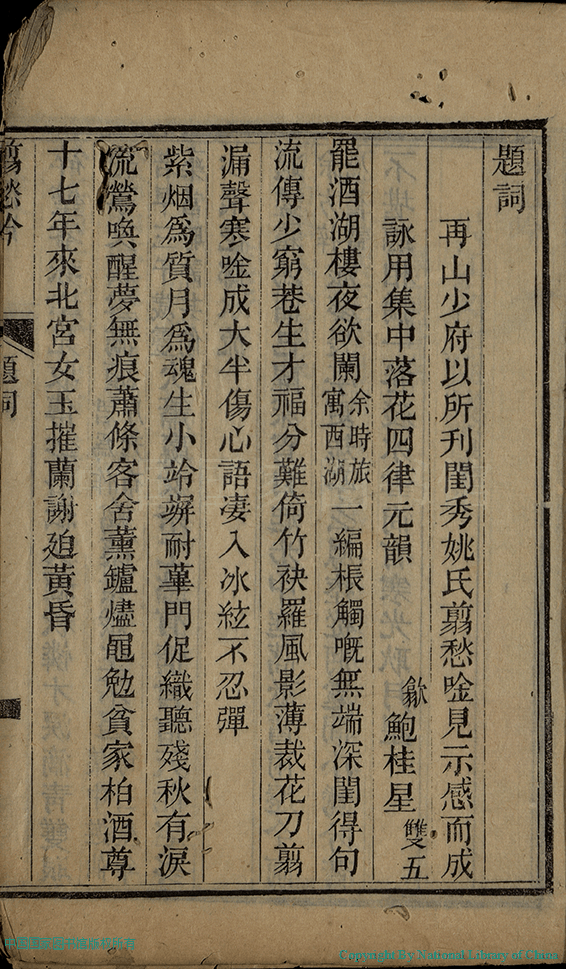 題詞
再山少府以所刊閨秀姚氏翦愁唫見示感而成
詠用集中落花四律元韻 歙鮑桂星雙五
罷酒湖樓夜欲闌余時旅寓西湖一編棖觸嘅無端深閨得句
流傳少窮巷生才福分難倚竹袂羅風影薄裁花刀翦
漏聲寒唫成大半傷心語凄入冰絃不忍彈
紫烟爲質月爲魂生小竛竮耐蓽門促織聽殘秋有淚
流鶯喚醒夢無痕蕭條客舍薰鑪燼黽勉貧家柏酒尊
十七年來北宮女玉摧蘭謝廹黃昏
翦愁吟
題詞
Copyright By National Library of China